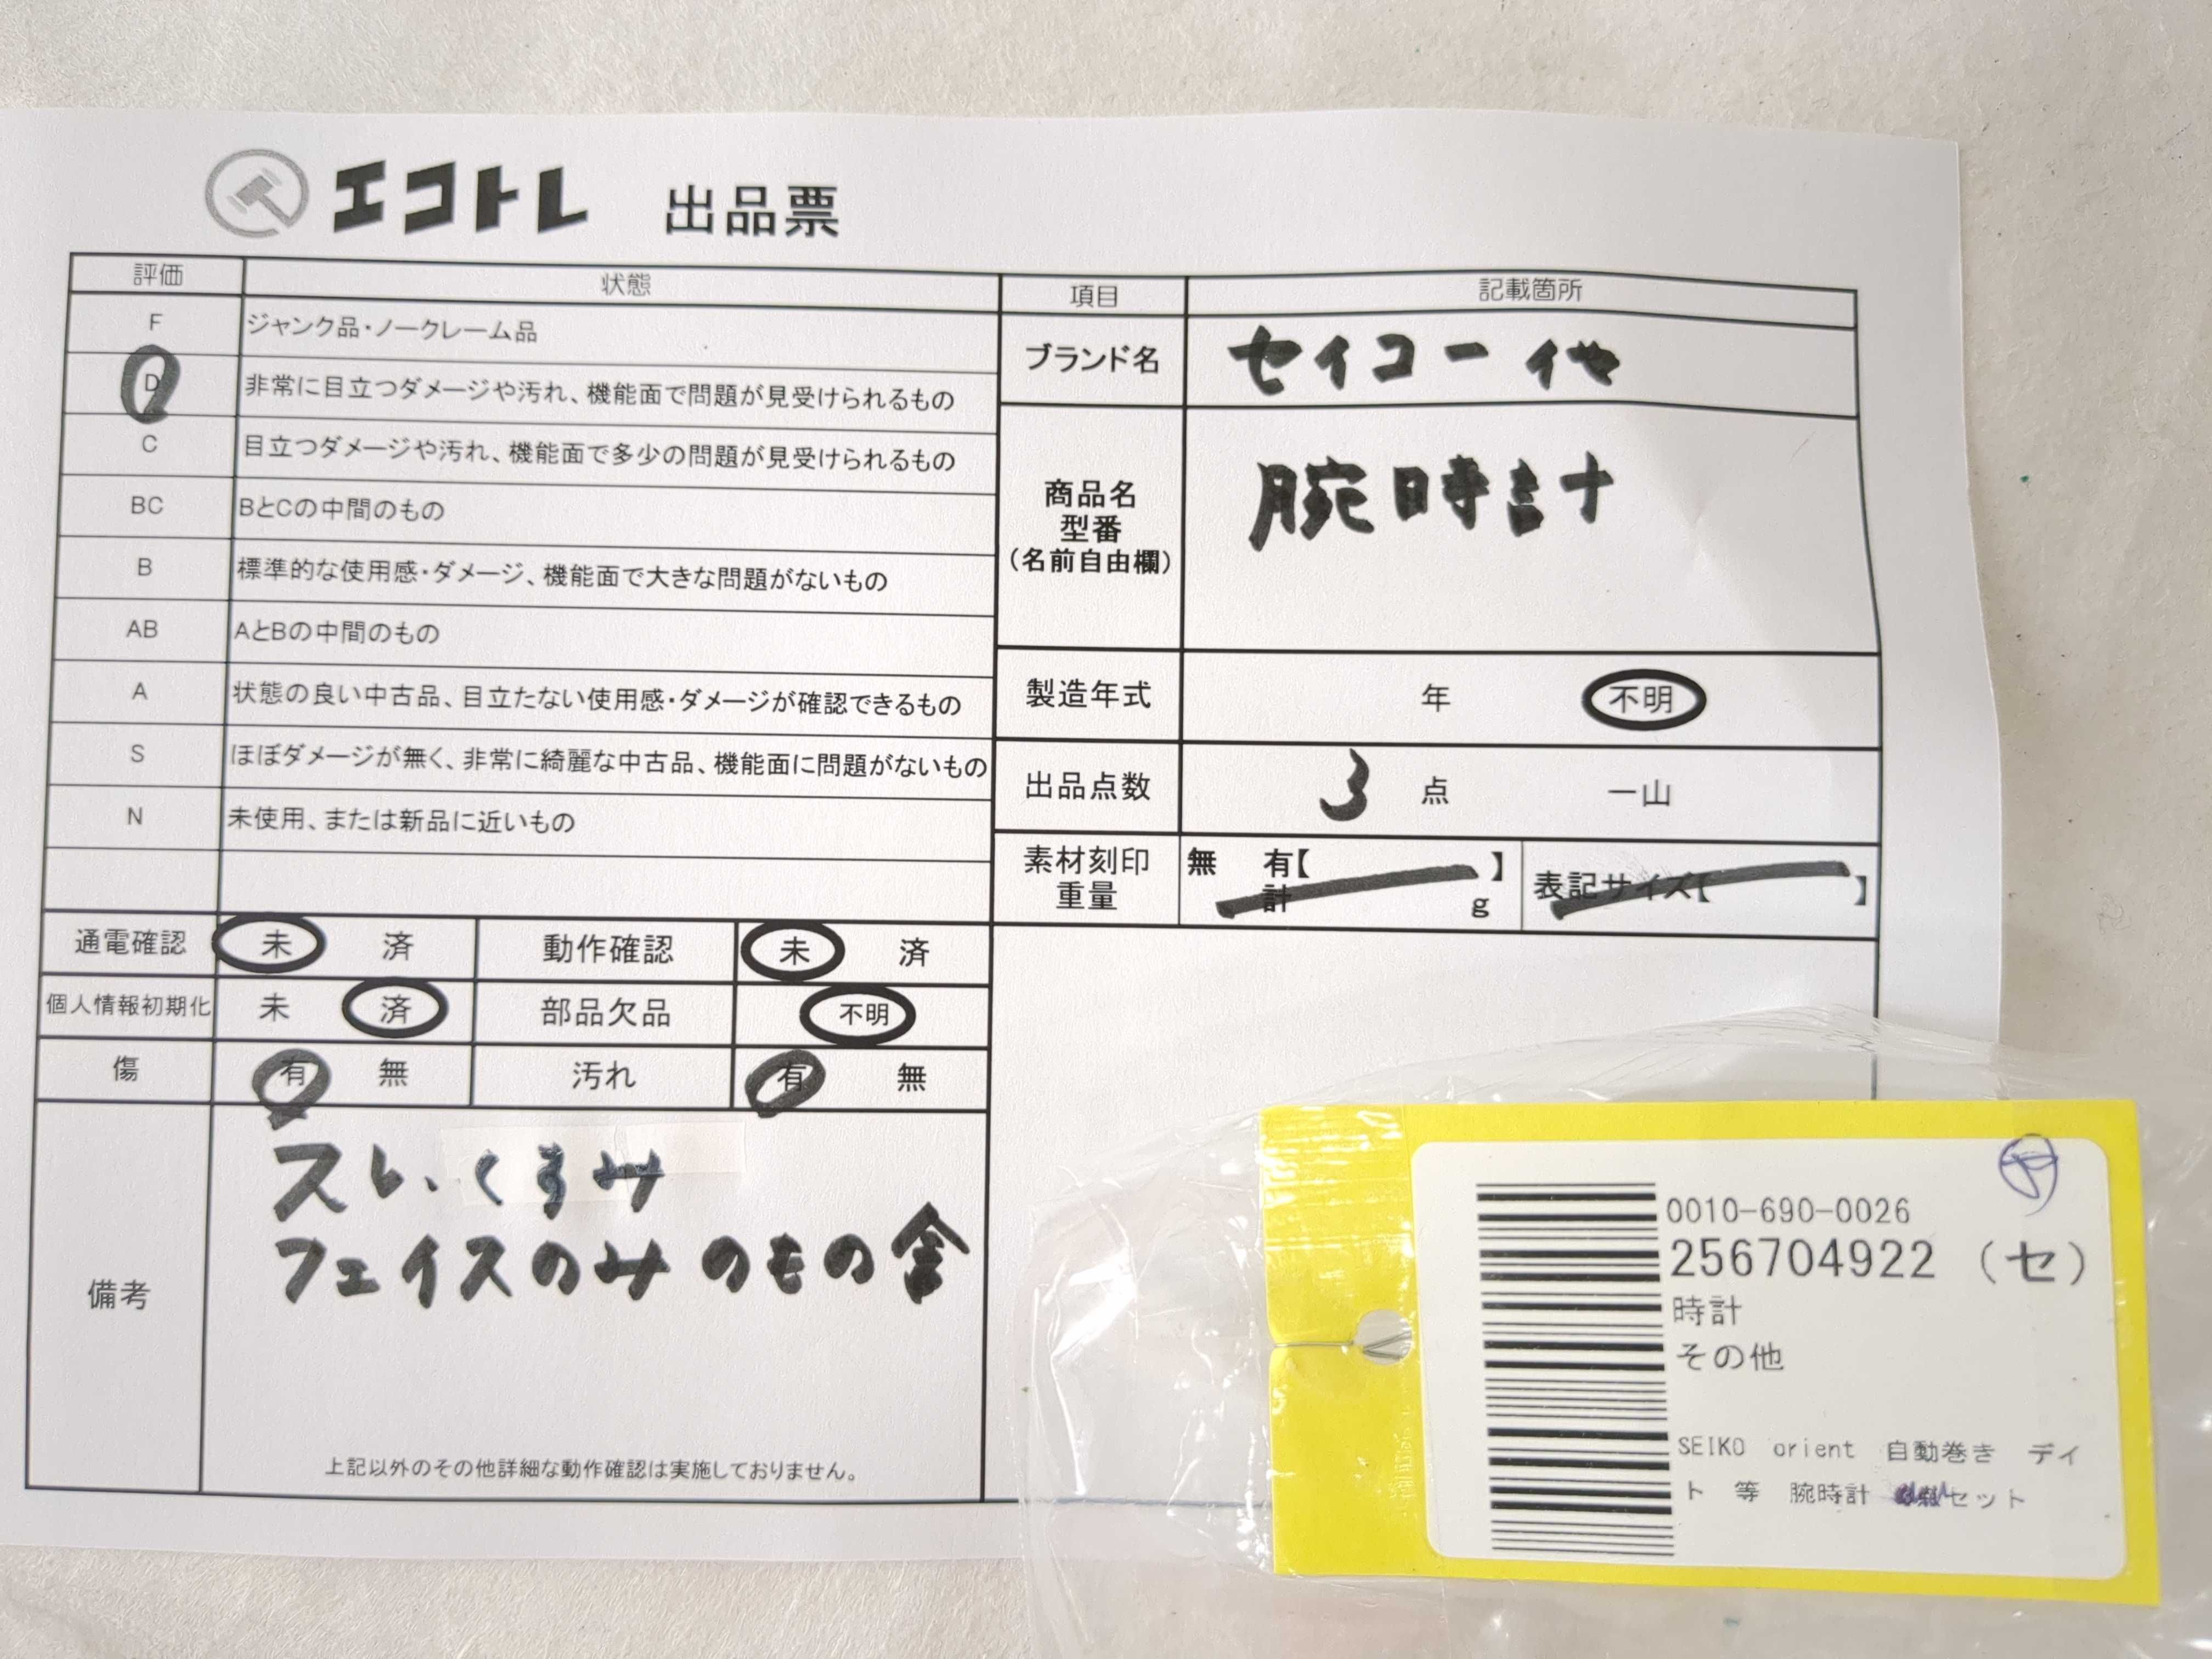 エコトレ 出品票
評価 状態
F ジャンク品・ノークレーム品
D 非常に目立つダメージや汚れ、機能面で問題が見受けられるもの
C 目立つダメージや汚れ、機能面で多少の問題が見受けられるもの
BC BとCの中間のもの
B 標準的な使用感・ダメージ、機能面で大きな問題がないもの
AB AとBの中間のもの
A 状態の良い中古品、目立たない使用感・ダメージが確認できるもの
S ほぼダメージが無く、非常に綺麗な中古品、機能面に問題がないもの
N 未使用、または新品に近いもの
項目 記載箇所
ブランド名 セイコー 他
商品名
型番
(名前自由欄)
腕時計
製造年式 年 不明
出品点数 3 点 一山
素材刻印
重量
無 有【 】
計 g
表記サイズ【 】
通電確認 未 済 動作確認 未 済
個人情報初期化 未 済 部品欠品 不明
傷 有 無 汚れ 有 無
備考
スレ、くすみ
フェイスのみのもの含
上記以外のその他詳細な動作確認は実施しておりません。
0010-690-0026
256704922 (セ)
時計
その他
SEIKO orient 自動巻き デイ
ト 等 腕時計 セット